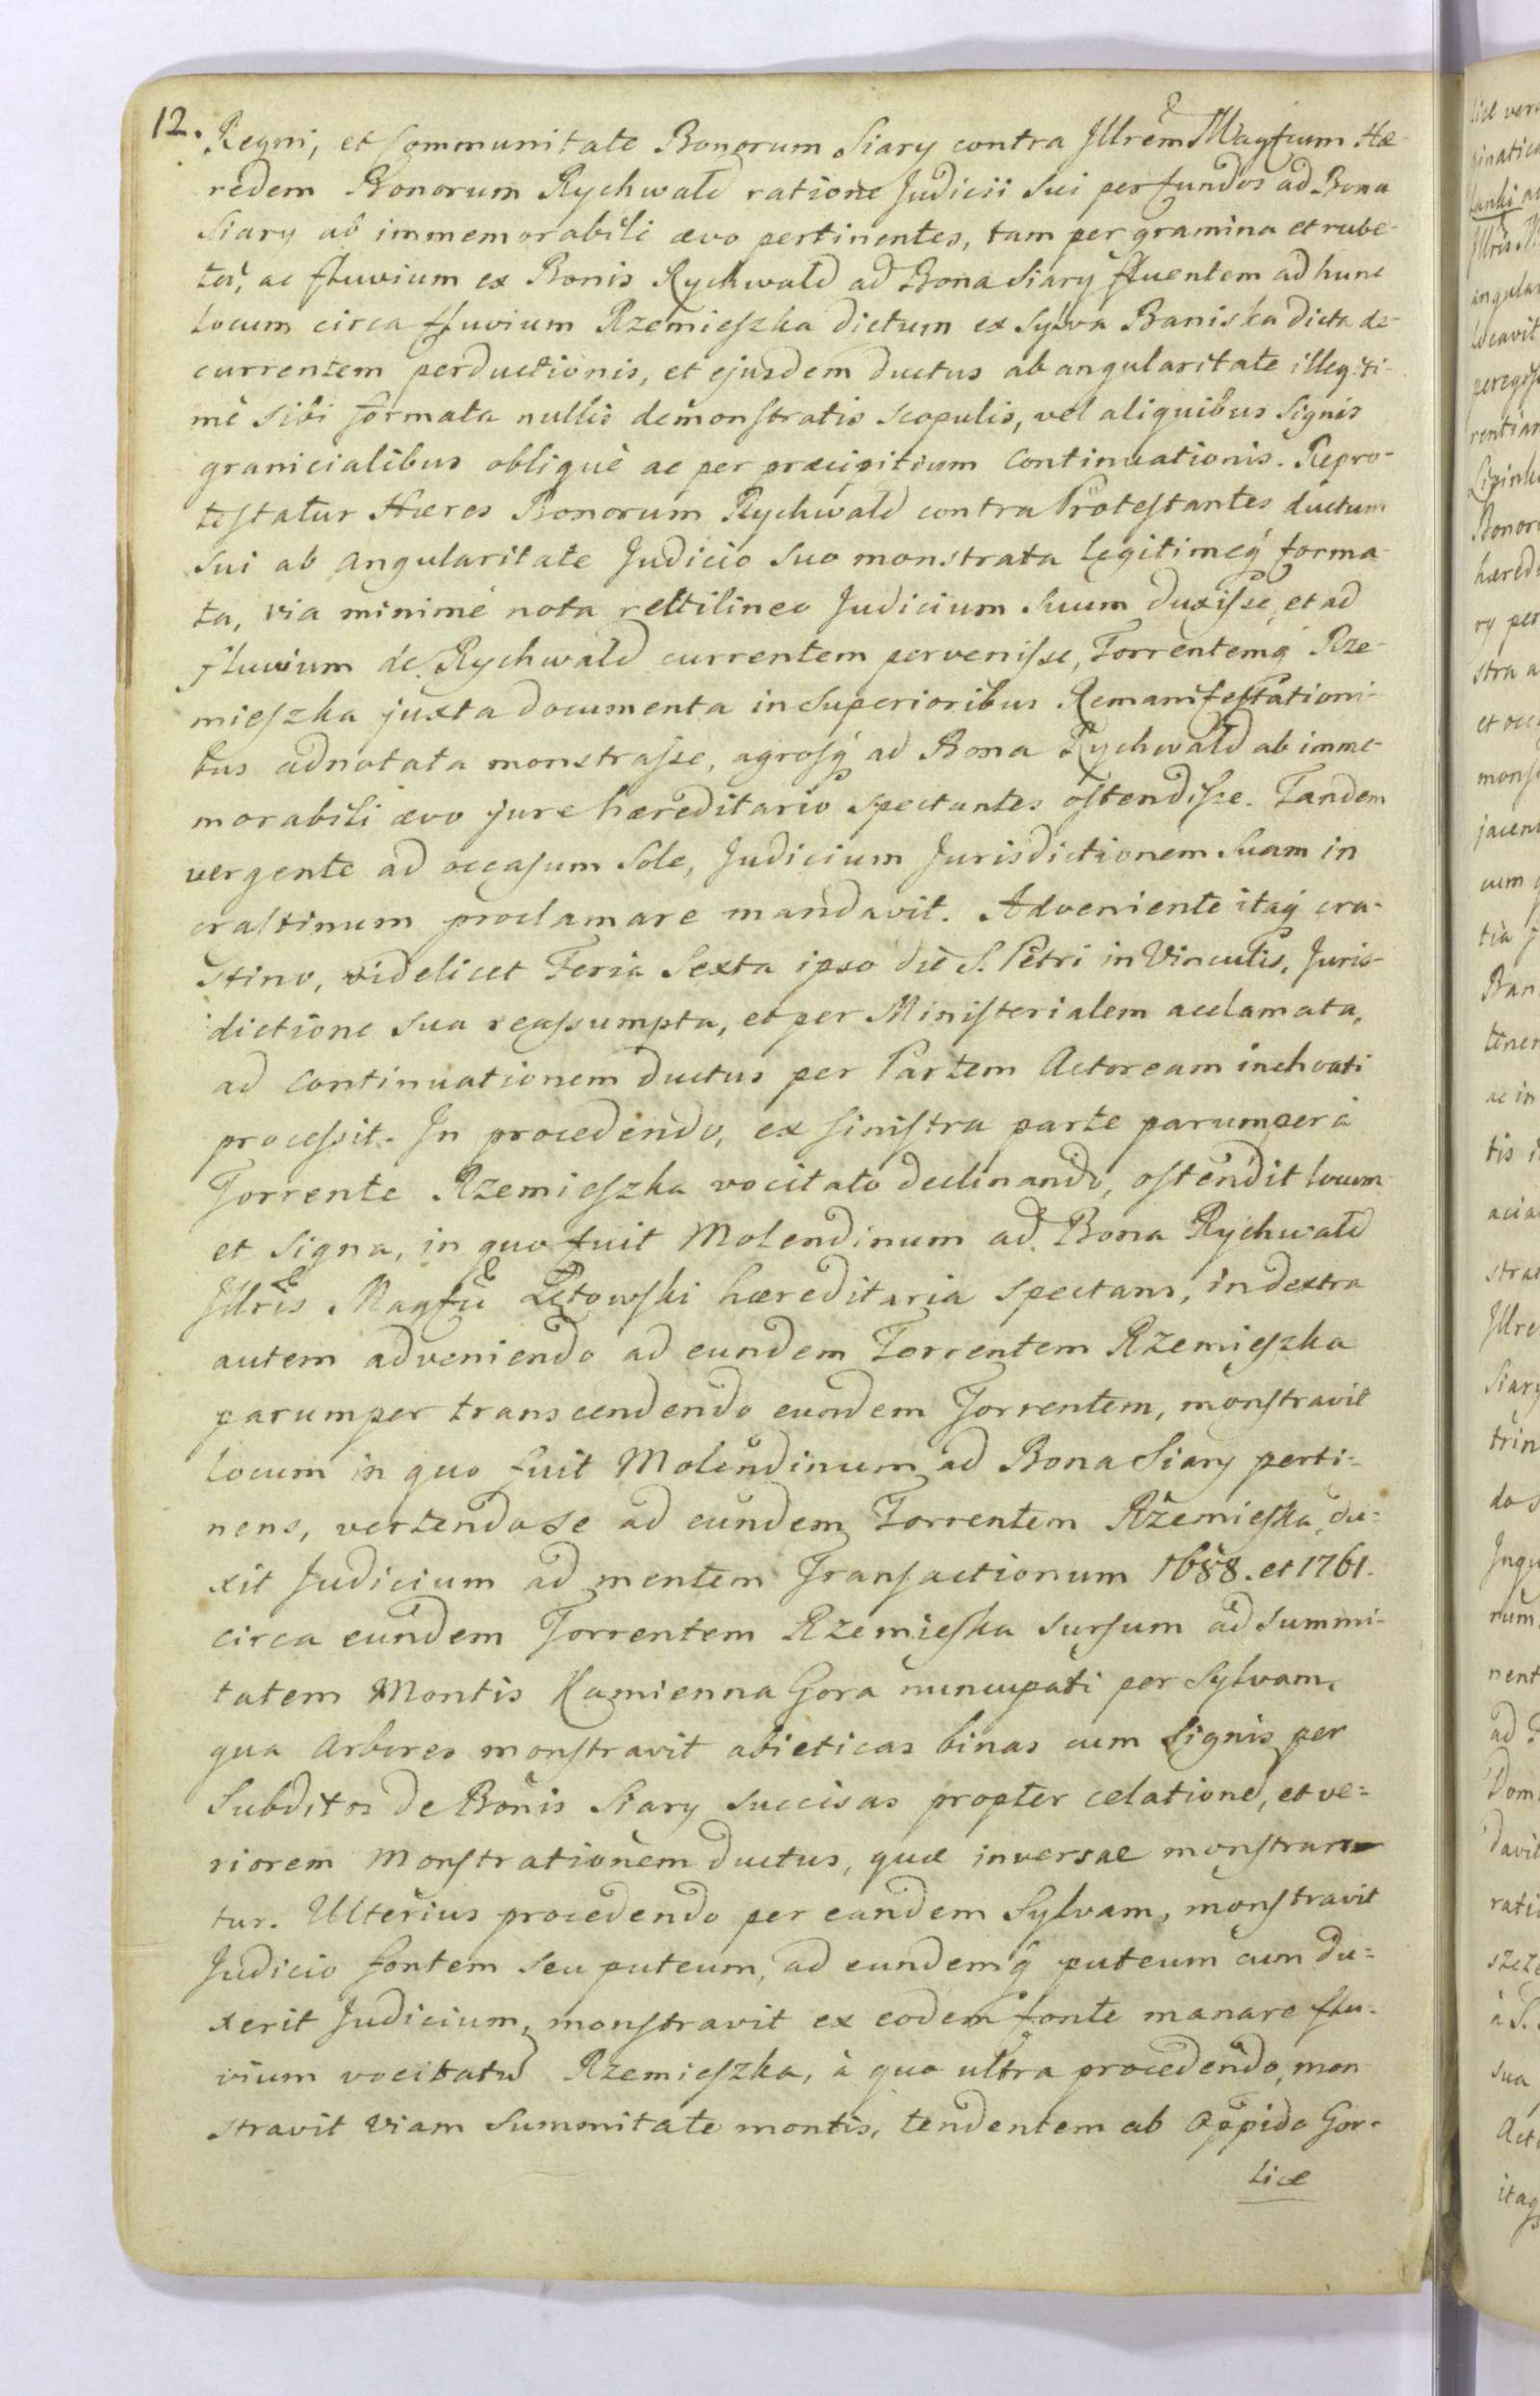 12.
Regni, et Communitate Bonorum Siary contra Jllrem Magfium Hæ-
redem Bonorum Rychwałd ratione Judicii sui per fundos ad Bona
Siary ab immemorabili ævo pertinentes, tam per gramina et rube-
ta, ac fluvium ex Bonis Rychwałd ad Bona Siary fluentem ad hunc
locum circa fluvium Rzemieszka dictum ex Sylva Baniska dicta de-
currentem perductionis, et ejusdem ductus ab angularitate illegiti-
mè sibi formata nullis demonstratis scopulis, vel aliquibus signis
granicialibus obliquè ac per præcipitium continuationis. Repro-
testatur Hæres Bonorum Rychwałd contra Protestantes ductum
sui ab angularitate Judicio suo monstrata legitimeq́ forma-
ta, via minimè nota rectilineo Judicium suum duxisse, et ad
fluvium de Rychwałd currentem pervenisse, Torrentemq́ Rze-
mieszka juxta documenta in superioribus Remanifestationi-
bus adnotata monstrasse, agrosq́ ad Bona Rychwałd ab imme-
morabili ævo jure hæreditario spectantes ostendisse. Tandem
vergente ad occasum Sole, Judicium Jurisdictionem suam in
crastinum proclamare mandavit. Adveniente itaq́ cra-
stino, videlicet Feria Sexta ipso die S. Petri in Vinculis, Juris-
dictione sua reassumpta, et per Ministerialem acclamata,
ad continuationem ductus per Partem Actoream inchoati
processit. In procedendo, ex sinistra parte parumper à
Torrente Rzemieszka vocitato declinando, ostendit locum
et signa, in quo fuit Molendinum ad Bona Rychwałd
Jllris Magfii Łętowski hæreditaria spectans, in dextra
autem adveniendo ad eundem Torrentem Rzemieszka
parumper transcendendo eundem Torrentem, monstravit
locum in quo fuit Molendinum ad Bona Siary perti-
nens, vertendo se ad eundem Torrentem Rzemieska, du-
xit Judicium ad mentem Transactionum 1688. et 1761.
circa eundem Torrentem Rzemieska sursum ad summi-
tatem Montis Kamienna Gora nuncupati per Sylvam,
qua Arbores monstravit abieticas binas cum signis per
Subditos de Bonis Siary succisas propter celatione, et ve-
riorem Monstrationem ductus, quæ inversae monstran-
tur. Ulterius procedendo per eandem Sylvam, monstravit
Judicio fontem seu puteum, ad eundemq́ puteum cum du-
xerit Judicium, monstravit ex eodem fonte manare flu-
vium vocitatū Rzemieszka, à quo ultra procedendo, mon
stravit viam summitate montis, tendentem ab Oppido Gor-
licæ